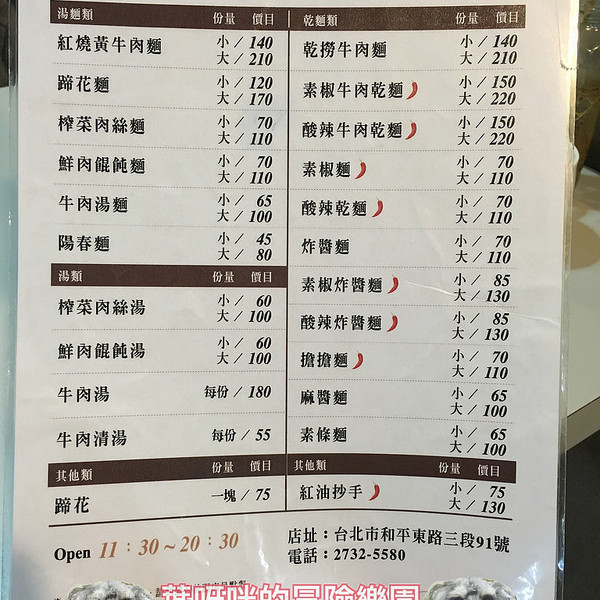 湯麵類 份量 價目
紅燒黃牛肉麵 小／140
大／210
蹄花麵 小／120
大／170
榨菜肉絲麵 小／70
大／110
鮮肉餛飩麵 小／70
大／110
牛肉湯麵 小／65
大／100
陽春麵 小／45
大／80
湯類 份量 價目
榨菜肉絲湯 小／60
大／100
鮮肉餛飩湯 小／60
大／100
牛肉湯 每份／180
牛肉清湯 每份／55
其他類 份量 價目
蹄花 一塊／75
乾麵類 份量 價目
乾撈牛肉麵 小／140
大／210
素椒牛肉乾麵 小／150
大／220
酸辣牛肉乾麵 小／150
大／220
素椒麵 小／70
大／110
酸辣乾麵 小／70
大／110
炸醬麵 小／70
大／110
素椒炸醬麵 小／85
大／130
酸辣炸醬麵 小／85
大／130
擔擔麵 小／70
大／110
麻醬麵 小／65
大／100
素條麵 小／65
大／100
其他類 份量 價目
紅油抄手 小／75
大／130
Open 11：30～20：30
店址：台北市和平東路三段91號
電話：2732-5580
葉呀咪的冒險樂園